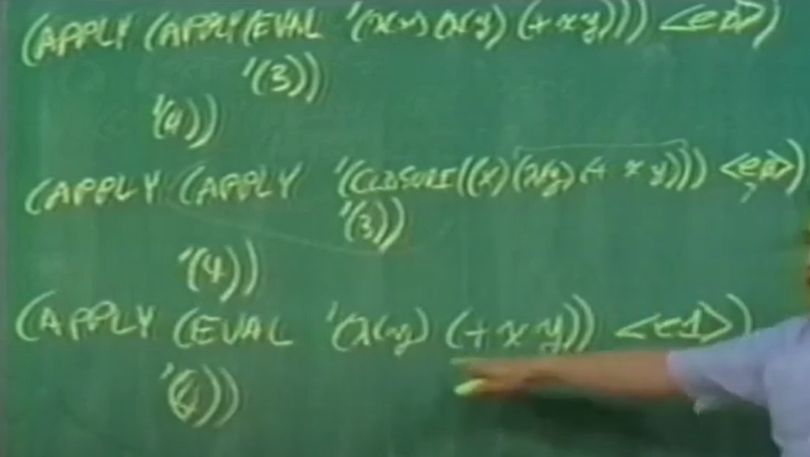 (APPLY (APPLY (EVAL '(λ(x) (λ(y) (+ x y))) <e0>)
'(3))
'(4))
(APPLY (APPLY '(CLOSURE ((x) (λ(y) (+ x y))) <e0>)
'(3))
'(4))
(APPLY (EVAL '(λ(y) (+ x y)) <e1>)
'(4))